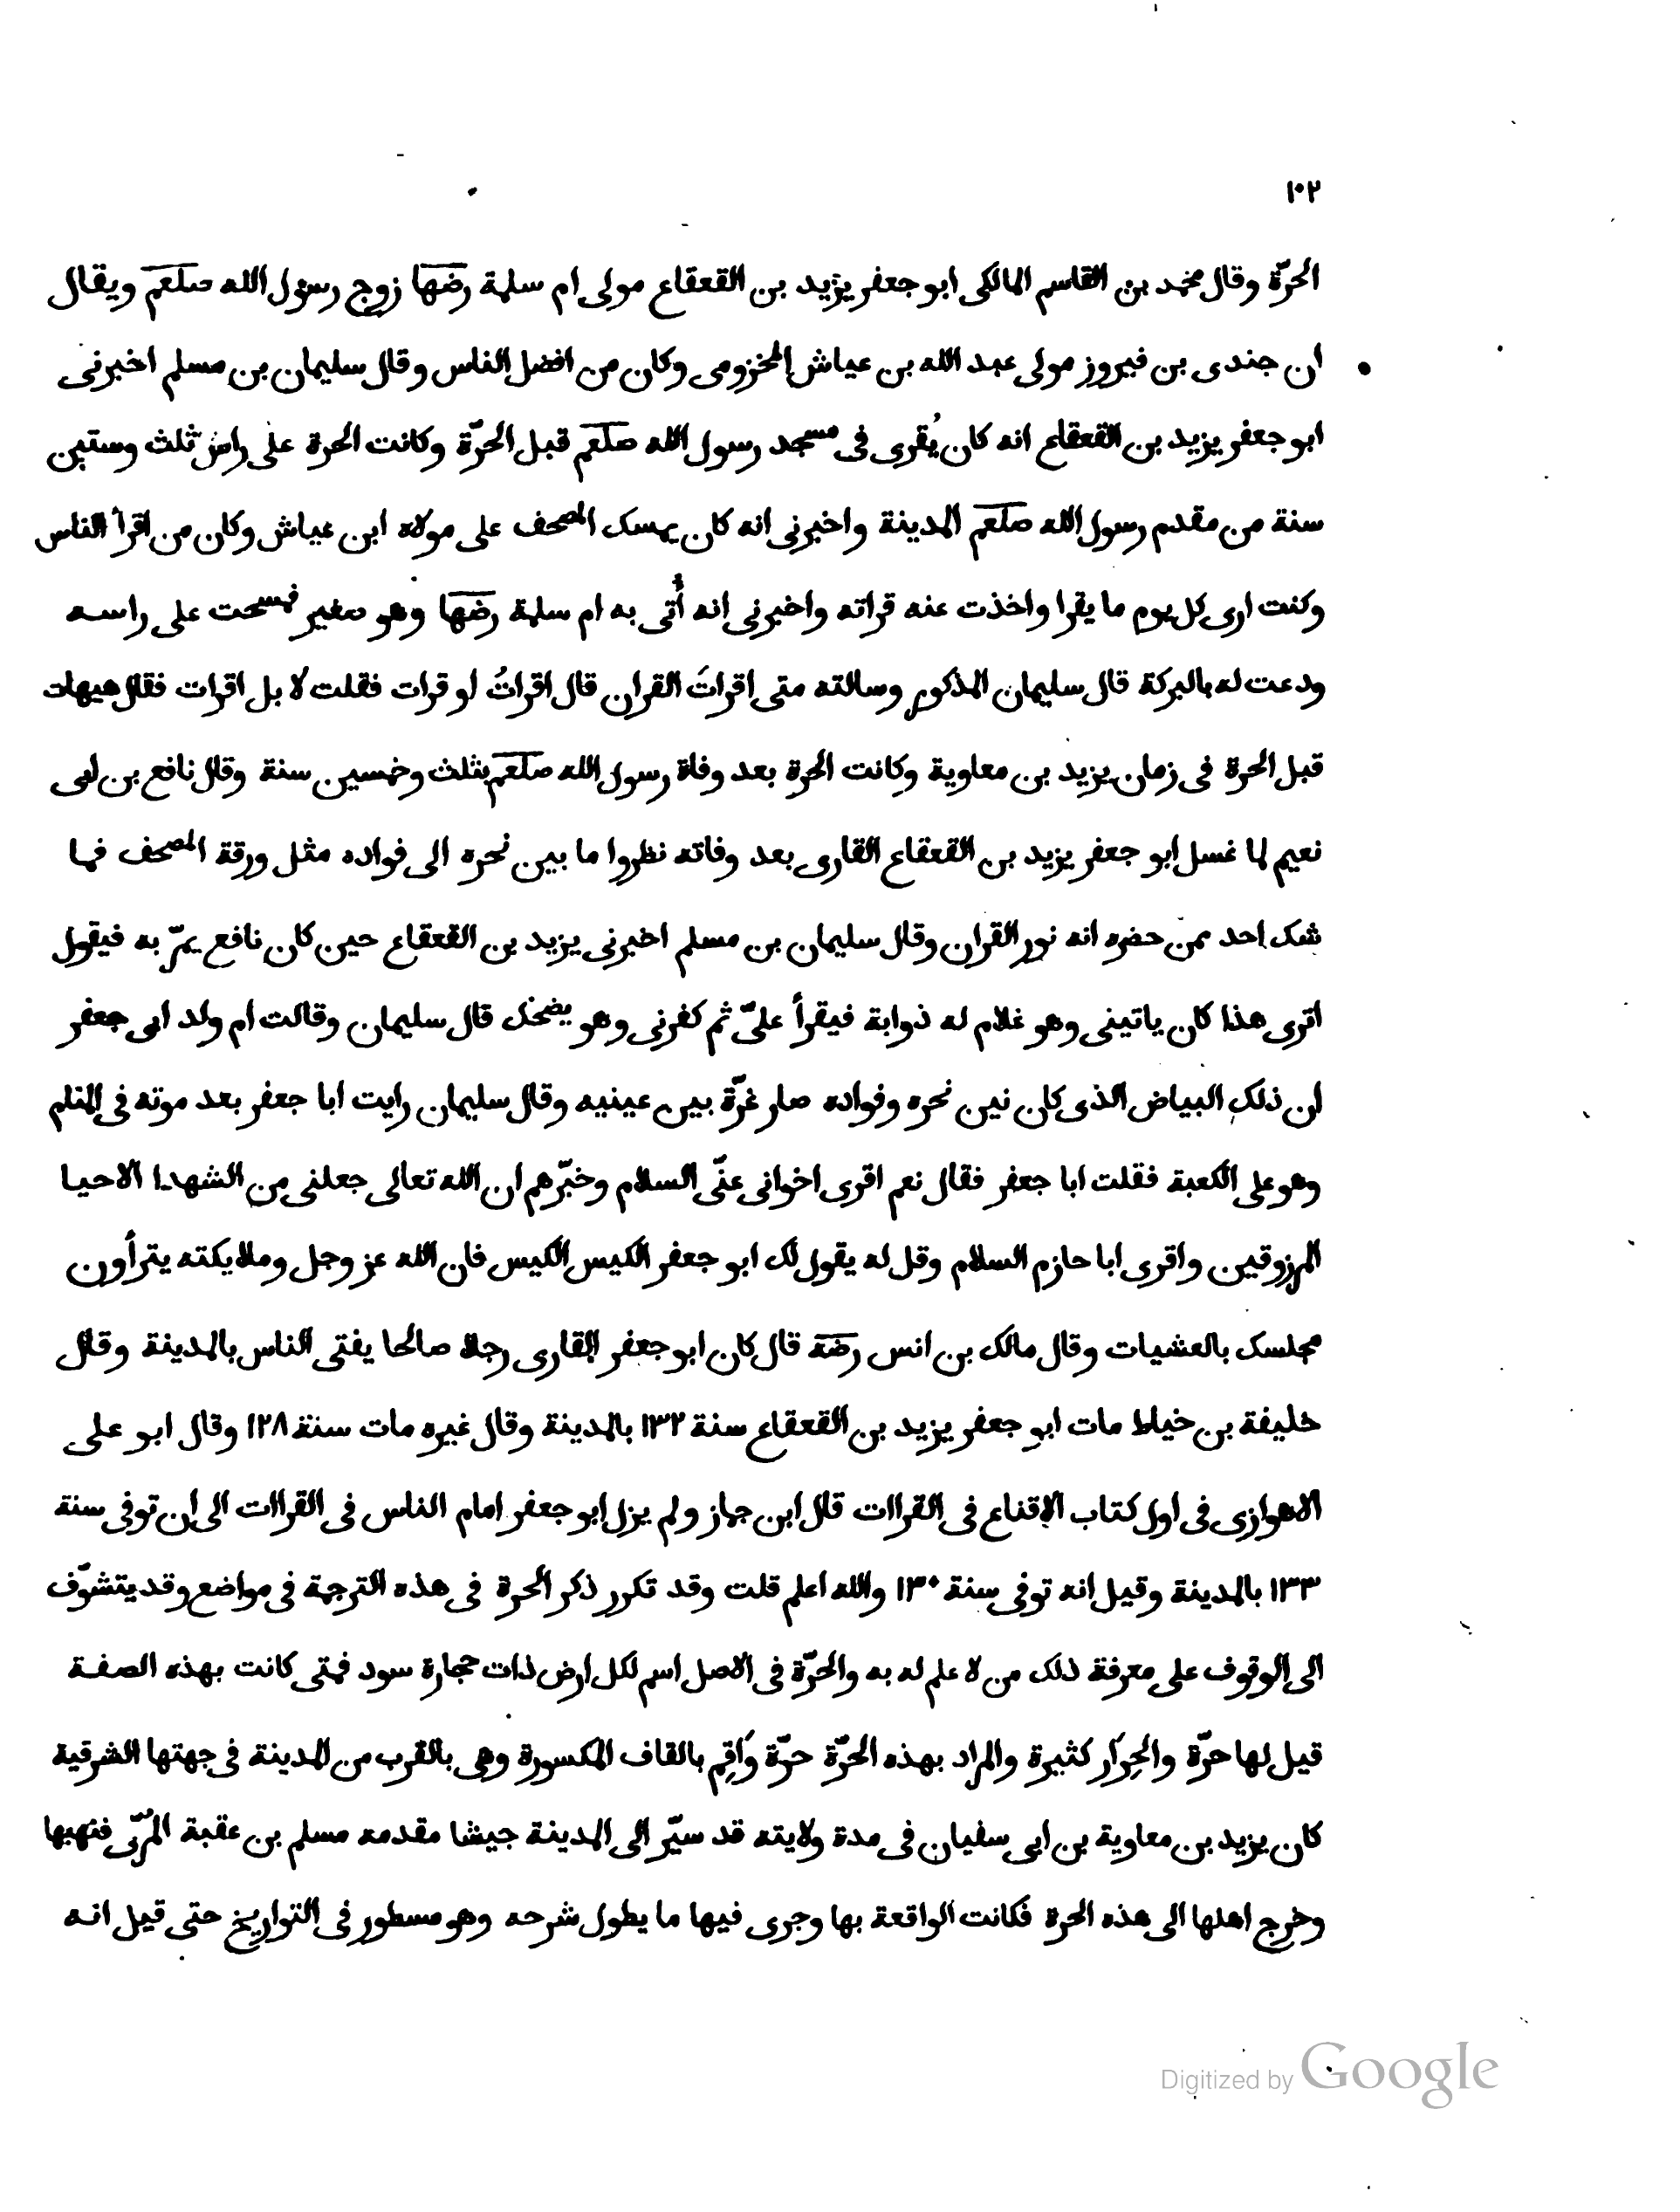 ١٠٢
الحرّة وقال محمد بن القاسم المالكى ابو جعفر يزيد بن القعقاع مولى ام سلمة رضها زوج رسول الله صلعم ويقال
ان جندى بن فيروز مولى عبد الله بن عياش المخزومى وكان من افضل الناس وقال سليمان بن مسلم اخبرنى
ابو جعفر يزيد بن القعقاع انه كان يُقرى فى مسجد رسول الله صلعم قبل الحرّة وكانت الحرة على راس ثلث وستين
سنة من مقدم رسول الله صلعم المدينة واخبرنى انه كان يمسك المصحف على مولاه ابن عياش وكان من اقرأ الناس
وكنت ارى كل يوم ما يقرا واخذت عنه قراته واخبرنى انه أُتى به ام سلمة رضها وهو صغير فمسحت على راسه
ودعت له بالبركة قال سليمان المذكور وسالته متى اقراتَ القران قال اقراتُ او قرات فقلت لا بل اقرات فقال هيهات
قبل الحرة فى زمان يزيد بن معاوية وكانت الحرة بعد وفاة رسول الله صلعم بثلث وخمسين سنة وقال نافع بن ابى
نعيم لما غسل ابو جعفر يزيد بن القعقاع القارى بعد وفاته نظروا ما بين نحره الى فواده مثل ورقة المصحف فما
شك احد ممن حضره انه نور القران وقال سليمان بن مسلم اخبرنى يزيد بن القعقاع حين كان نافع يمرّ به فيقول
اترى هذا كان ياتينى وهو غلام له ذوابة فيقرأ علىّ ثم كفرنى وهو يضحك قال سليمان وقالت ام ولد ابى جعفر
ان ذلك البياض الذى كان نين نحره وفواده صار غرّة بين عينيه وقال سليمان رايت ابا جعفر بعد موته فى المنام
وهو على الكعبة فقلت ابا جعفر فقال نعم اقرى اخوانى عنّى السلام وخبّرهم ان الله تعالى جعلنى من الشهدا الاحيا
المرزوقين واقرى ابا حازم السلام وقل له يقول لك ابو جعفر الكيس الكيس فان الله عز وجل وملايكته يترأون
مجلسك بالعشيات وقال مالك بن انس رضه قال كان ابو جعفر القارى رجلا صالحا يفتى الناس بالمدينة وقال
خليفة بن خياط مات ابو جعفر يزيد بن القعقاع سنة ١٣٢ بالمدينة وقال غيره مات سنة ١٢٨ وقال ابو على
الاهوازى فى اول كتاب الاقناع فى القراات قال ابن جماز ولم يزل ابو جعفر امام الناس فى القراات الى ان توفى سنة
١٣٣ بالمدينة وقيل انه توفى سنة ١٣٠ والله اعلم قلت وقد تكرر ذكر الحرة فى هذه الترجمة فى مواضع وقد يتشوّف
الى الوقوف على معرفة ذلك من لا علم له به والحرّة فى الاصل اسم لكل ارض ذات حجارة سود فمتى كانت بهذه الصفة
قيل لها حرّة والحِرَار كثيرة والمراد بهذه الحرّة حرّة وَاقِم بالقاف المكسورة وهى بالقرب من المدينة فى جهتها الشرقية
كان يزيد بن معاوية بن ابى سفيان فى مدة ولايته قد سيّر الى المدينة جيشا مقدمه مسلم بن عقبة المُرّى فنهبها
وخرج اهلها الى هذه الحرة فكانت الواقعة بها وجرى فيها ما يطول شرحه وهو مسطور فى التواريخ حتى قيل انه
Digitized by Google